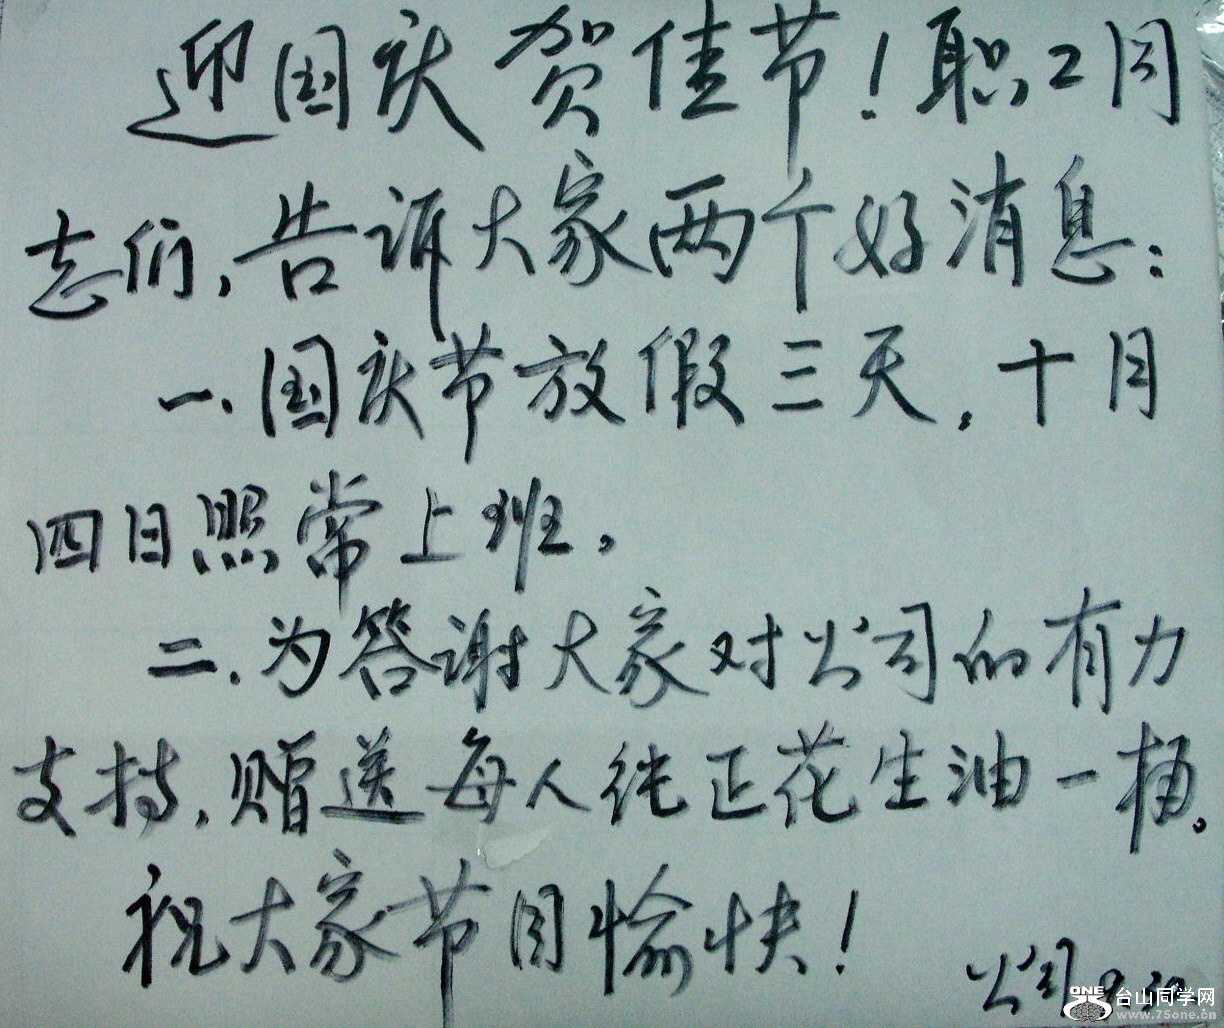 迎国庆 贺佳节！职工同
志们，告诉大家两个好消息：
一.国庆节放假三天，十月
四日照常上班。
二.为答谢大家对公司的有力
支持，赠送每人纯正花生油一桶。
祝大家节日愉快！
公司 9.30
ONE 台山同学网
www.75one.cn